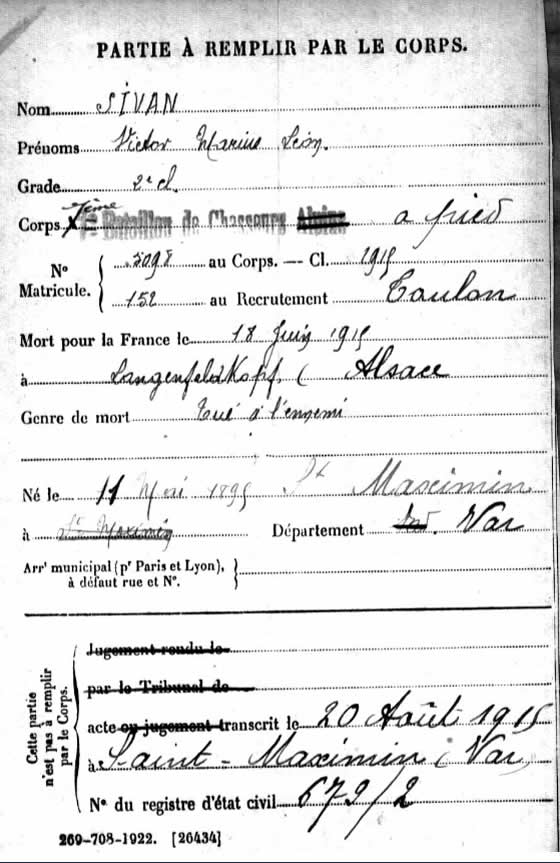 PARTIE À REMPLIR PAR LE CORPS.
Nom SIVAN
Prénoms Victor Marius Léon.
Grade 2e cl.
Corps 7ème Bataillon de Chasseurs Alpins a pied
No Matricule. { 5098 au Corps. — Cl. 1915
152 au Recrutement Toulon
Mort pour la France le 18 Juin 1915
à Langenfeldkopf ( Alsace
Genre de mort Tué à l'ennemi
Né le 11 Mai 1895 St Maximin
à St Maximin Département Var
Arrt municipal (pr Paris et Lyon),
à défaut rue et No.
Cette partie
n'est pas à remplir
par le Corps.
Jugement rendu le
par le Tribunal de
acte ou jugement transcrit le 20 Août 1915
à Saint-Maximin (Var)
No du registre d'état civil 679/2
269-708-1922. [26434]